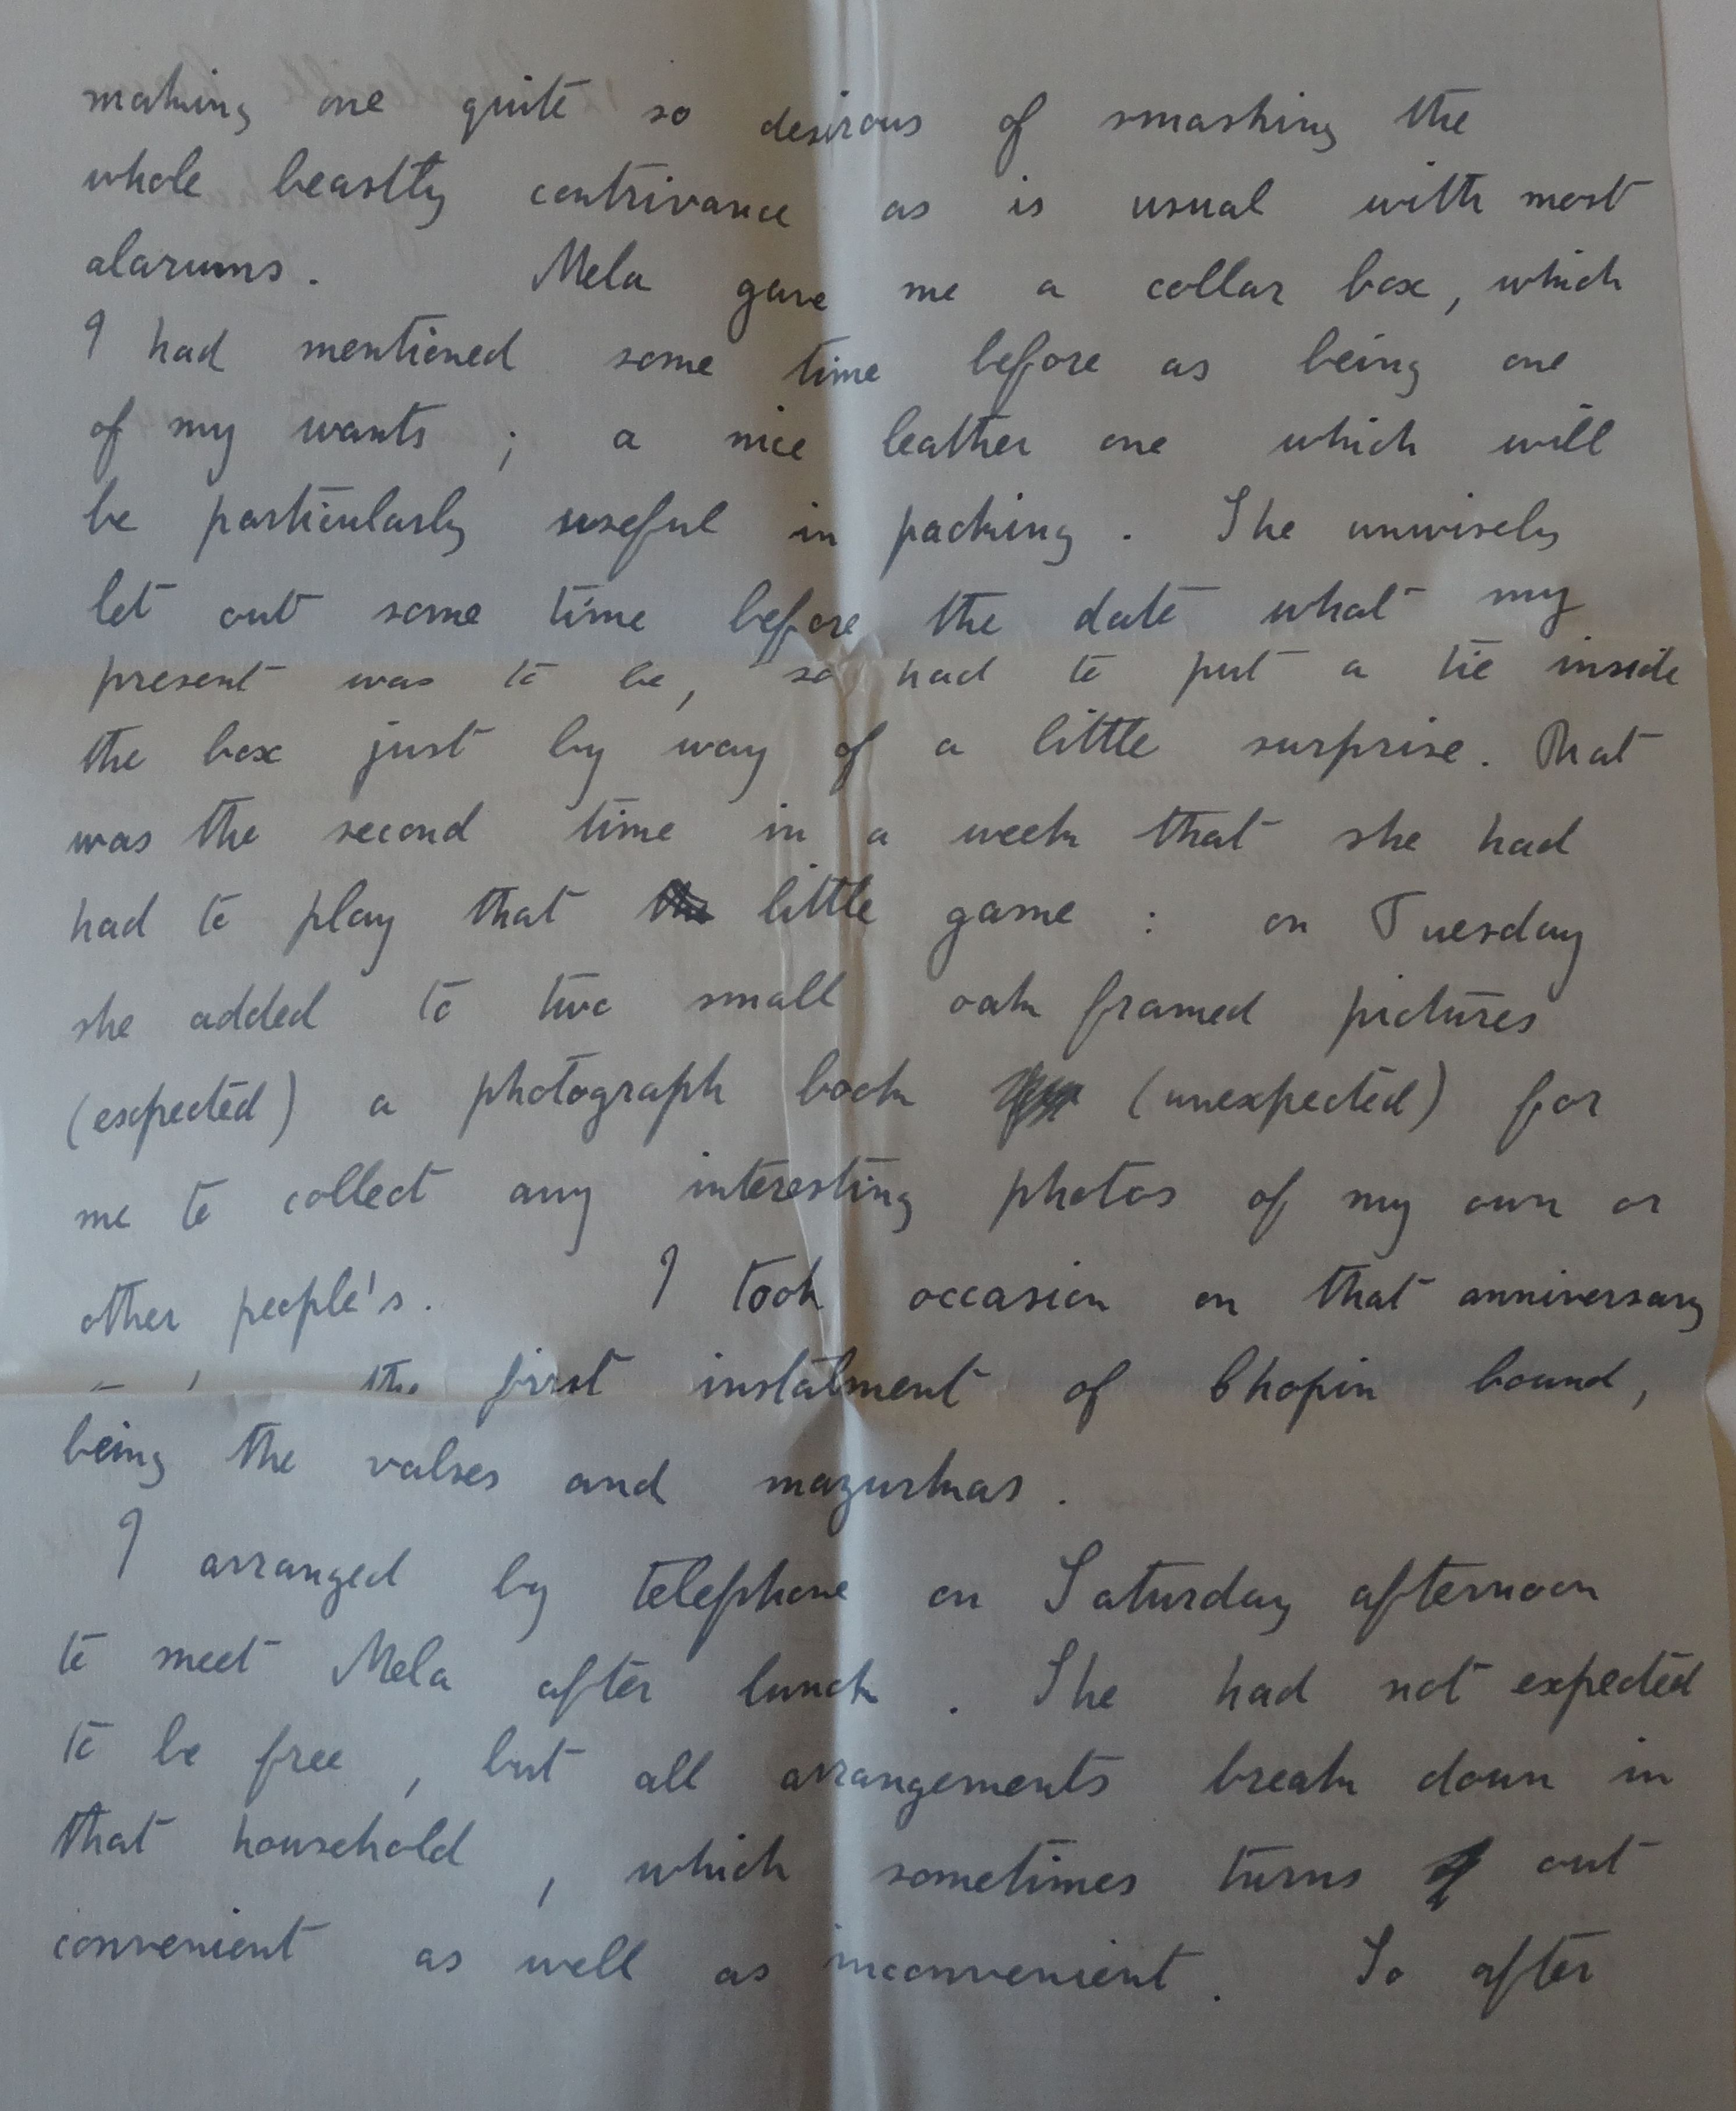 making one quite so desirous of smashing the
whole beastly contrivance as is usual with most
alarums. Mela gave me a collar box, which
I had mentioned some time before as being one
of my wants ; a nice leather one which will
be particularly useful in packing. She unwisely
let out some time before the date what my
present was to be, so had to put a tie inside
the box just by way of a little surprise. That
was the second time in a week that she had
had to play that little game : on Tuesday
she added to two small oak framed pictures
(expected) a photograph book (unexpected) for
me to collect any interesting photos of my own or
other people's. I took occasion on that anniversary
the first instalment of Chopin bound,
being the valses and mazurkas.
I arranged by telephone on Saturday afternoon
to meet Mela after lunch. She had not expected
to be free, but all arrangements break down in
that household, which sometimes turns out
convenient as well as inconvenient. So after